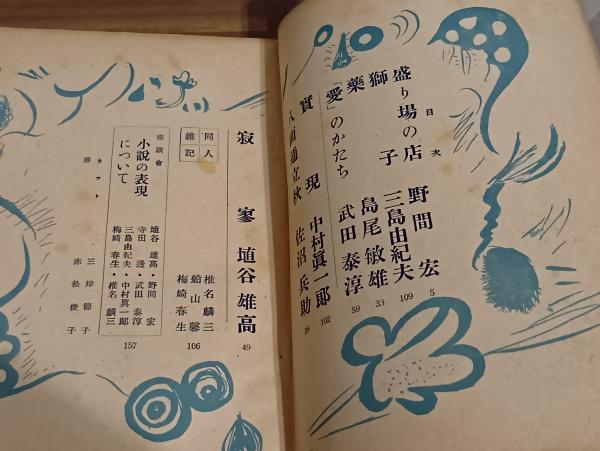 目次
盛り場の店 野間宏 5
獅子 三島由紀夫 109
藥 島尾敏雄 33
「愛」のかたち 武田泰淳 59
實現 中村眞一郎 102
佐沼兵助 28
寂寥 埴谷雄高 49
同人雑記
椎名麟三
船山馨
梅崎春生
106
座談會
小説の表現
について
埴谷雄高・野間宏
寺田透・武田泰淳
三島由紀夫・中村眞一郎
梅崎春生・椎名麟三
157
カット 三岸節子
扉 赤松俊子